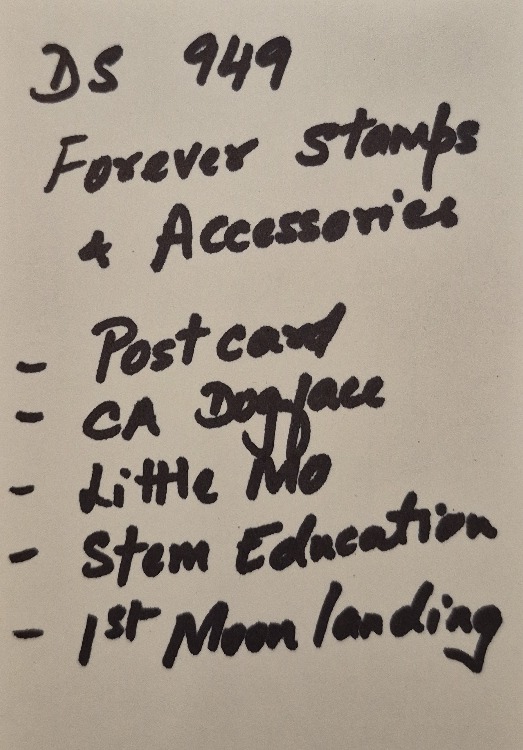 DS 949
Forever Stamps
& Accessories
- Postcard
- CA Dogface
- Little Mo
- Stem Education
- 1st Moon landing